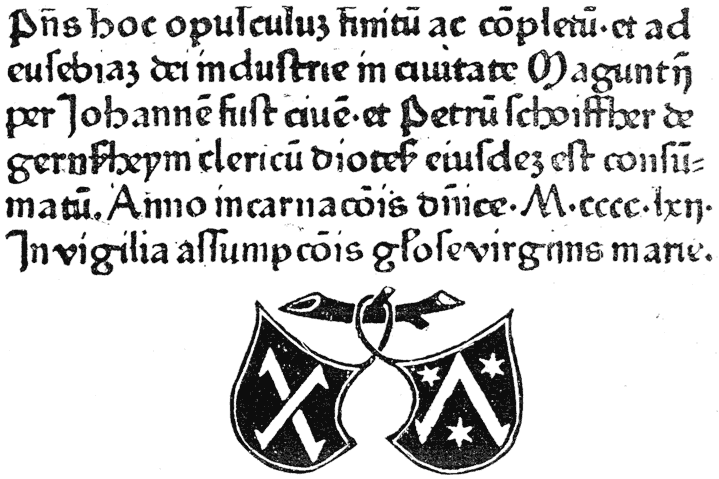 Pn̄s hoc opusculuꝫ finitū ac cōpletū· et ad
eusebiaꝫ dei industrie in ciuitate Maguntij
per Johannē fust ciuē· et Petrū schoiffher de
gernsheym clericū diotes̄ eiusdeꝫ est consū⸗
matū. Anno incarnacōis dn̄ice· M·cccc·lxij·
In vigilia assumpcōis gl̄ose virginis marie.